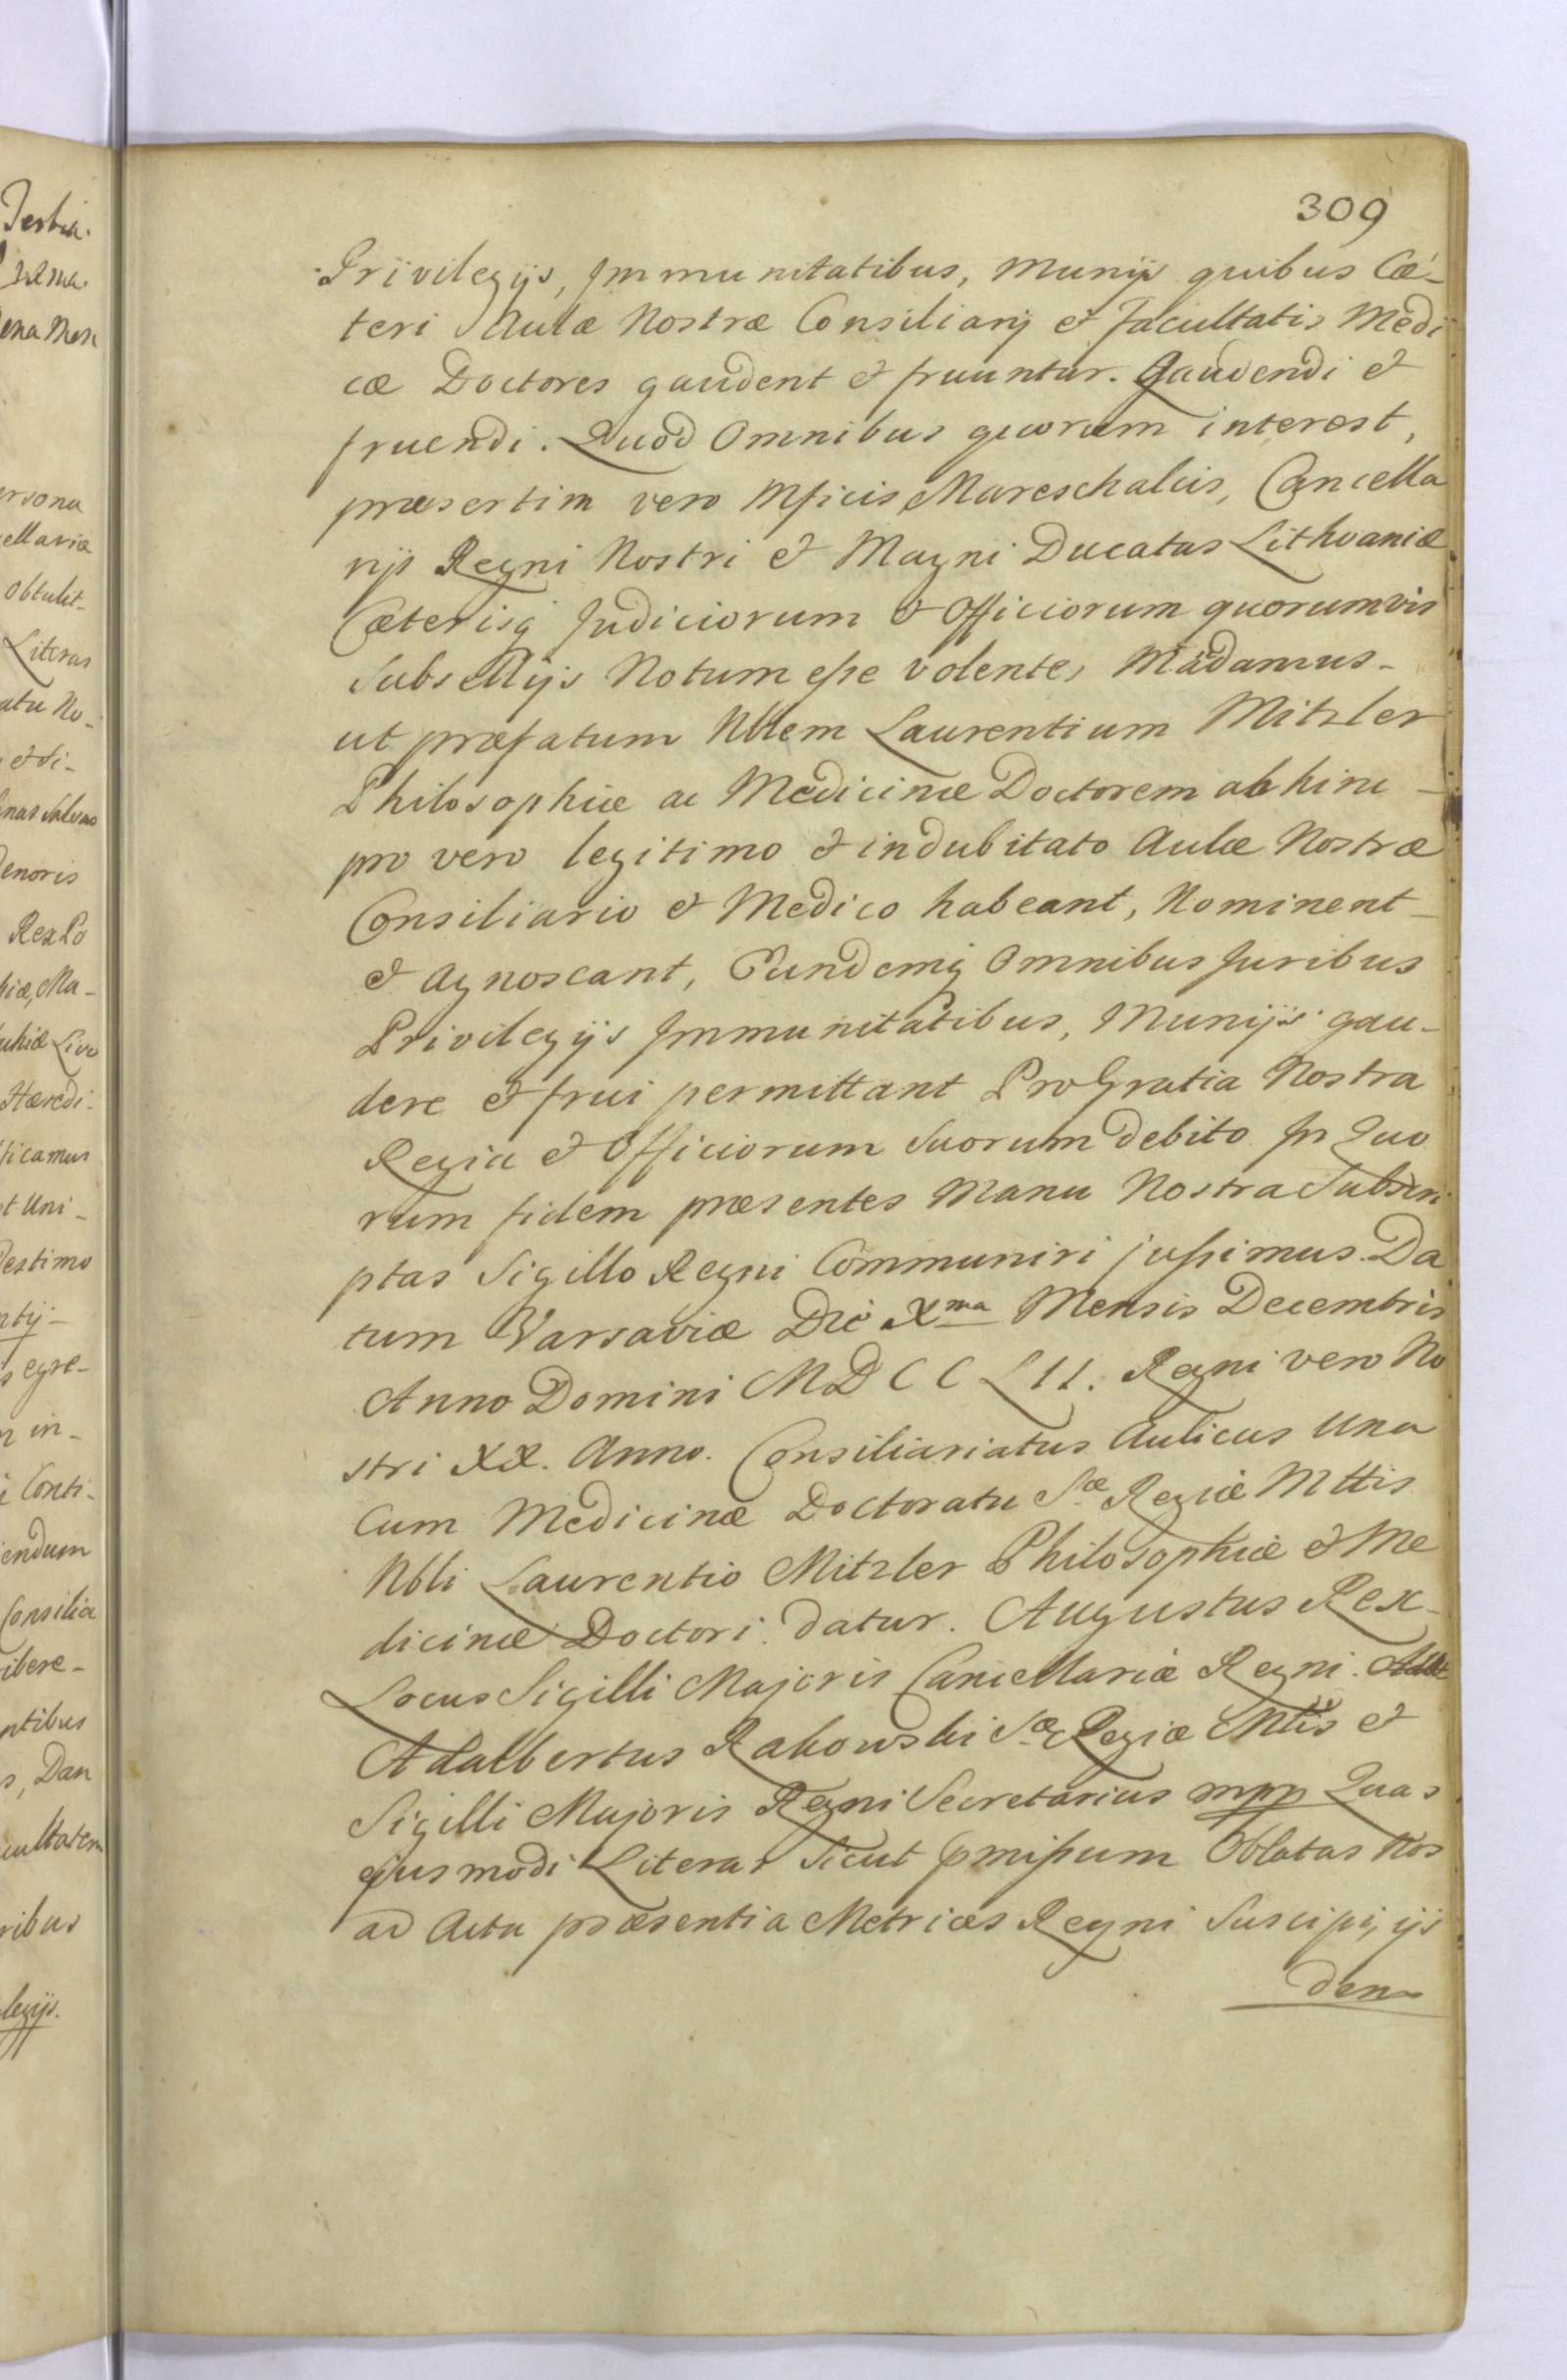 309
Privilegijs, Immunitatibus, Munijs quibus Cæ-
teri Aulæ Nostræ Consiliarij et Facultatis Medi
cæ Doctores gaudent et fruuntur. Gaudendi et
fruendi. Quod Omnibus quorum interest,
præsertim vero Mficis Mareschalcis, Cancella
rijs Regni Nostri et Magni Ducatus Lithvaniæ
Cæterisq Judiciorum et Officiorum quorumvis
Subsellijs Notum esse volentes Mãdamus-
ut præfatum Nblem Laurentium Mitzler
Philosophiæ ac Medicinæ Doctorem abhinc-
pro vero legitimo et indubitato Aulæ Nostræ
Consiliario et Medico habeant, Nominent-
et Agnoscant, Eundemq Omnibus Juribus
Privilegijs Immunitatibus, Munijs gau-
dere et frui permittant Pro Gratia Nostra
Regia et Officiorum Suorum debito In Quo
rum fidem præsentes Manu Nostra Subscri
ptas Sigillo Regni Communiri jussimus. Da
tum Varsaviæ Die Xma Mensis Decembris
Anno Domini MDCCLII. Regni vero No
stri XX. Anno. Consiliariatus Aulicus Una
Cum Medicinæ Doctoratu Sæ Regiæ Mttis
Nbli Laurentio Mitzler Philosophiæ et Me
dicinæ Doctori datur. Augustus Rex-
Locus Sigilli Majoris Cancellariæ Regni.
Adalbertus Rakowski Sæ Regiæ Mtis et
Sigilli Majoris Regni Secretarius mpp Quas
ejusmodi Literas Sicut pmissum Oblatas Nos
ad Acta præsentia Metrices Regni Suscipi, ijs
dem